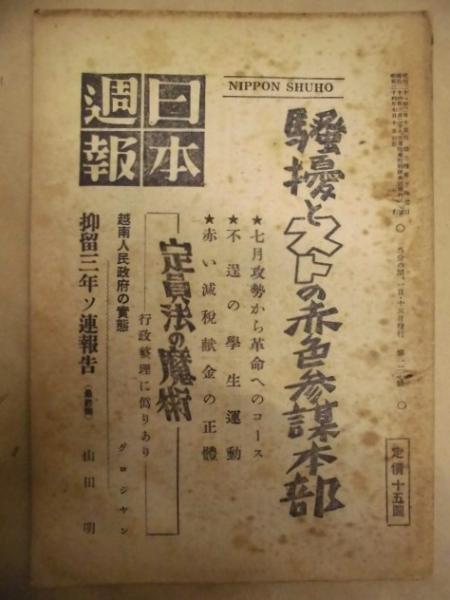 日本
週報
NIPPON SHUHO
騒擾とストの赤色参謀本部
★七月攻勢から革命へのコース
★不逞の學生運動
★赤い減税献金の正體
定員法の魔術
行政整理に偽りあり
越南人民政府の實態
グロジヤン
抑留三年ソ連報告（最終編）
山田明
定價十五圓